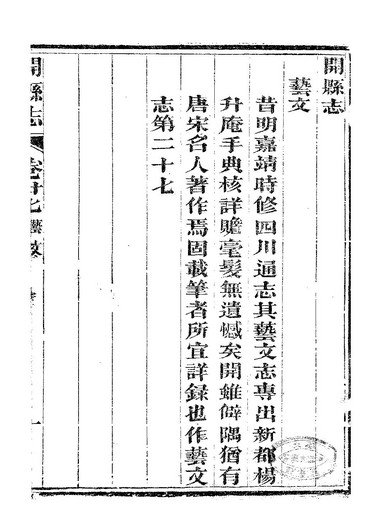 開縣志
藝文
昔明嘉靖時修四川通志其藝文志專出新都楊
升庵手典核詳贍毫髮無遺憾矣開雖僻隅猶有
唐宋名人著作焉固載筆者所宜詳錄也作藝文
志第二十七
開縣志
卷廿七
藝文
一